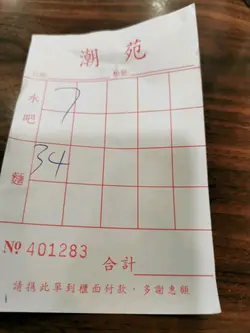 潮苑
日期 枱號
水吧 7
麵 34
№ 401283
合計
請携此單到櫃面付款，多謝惠顧